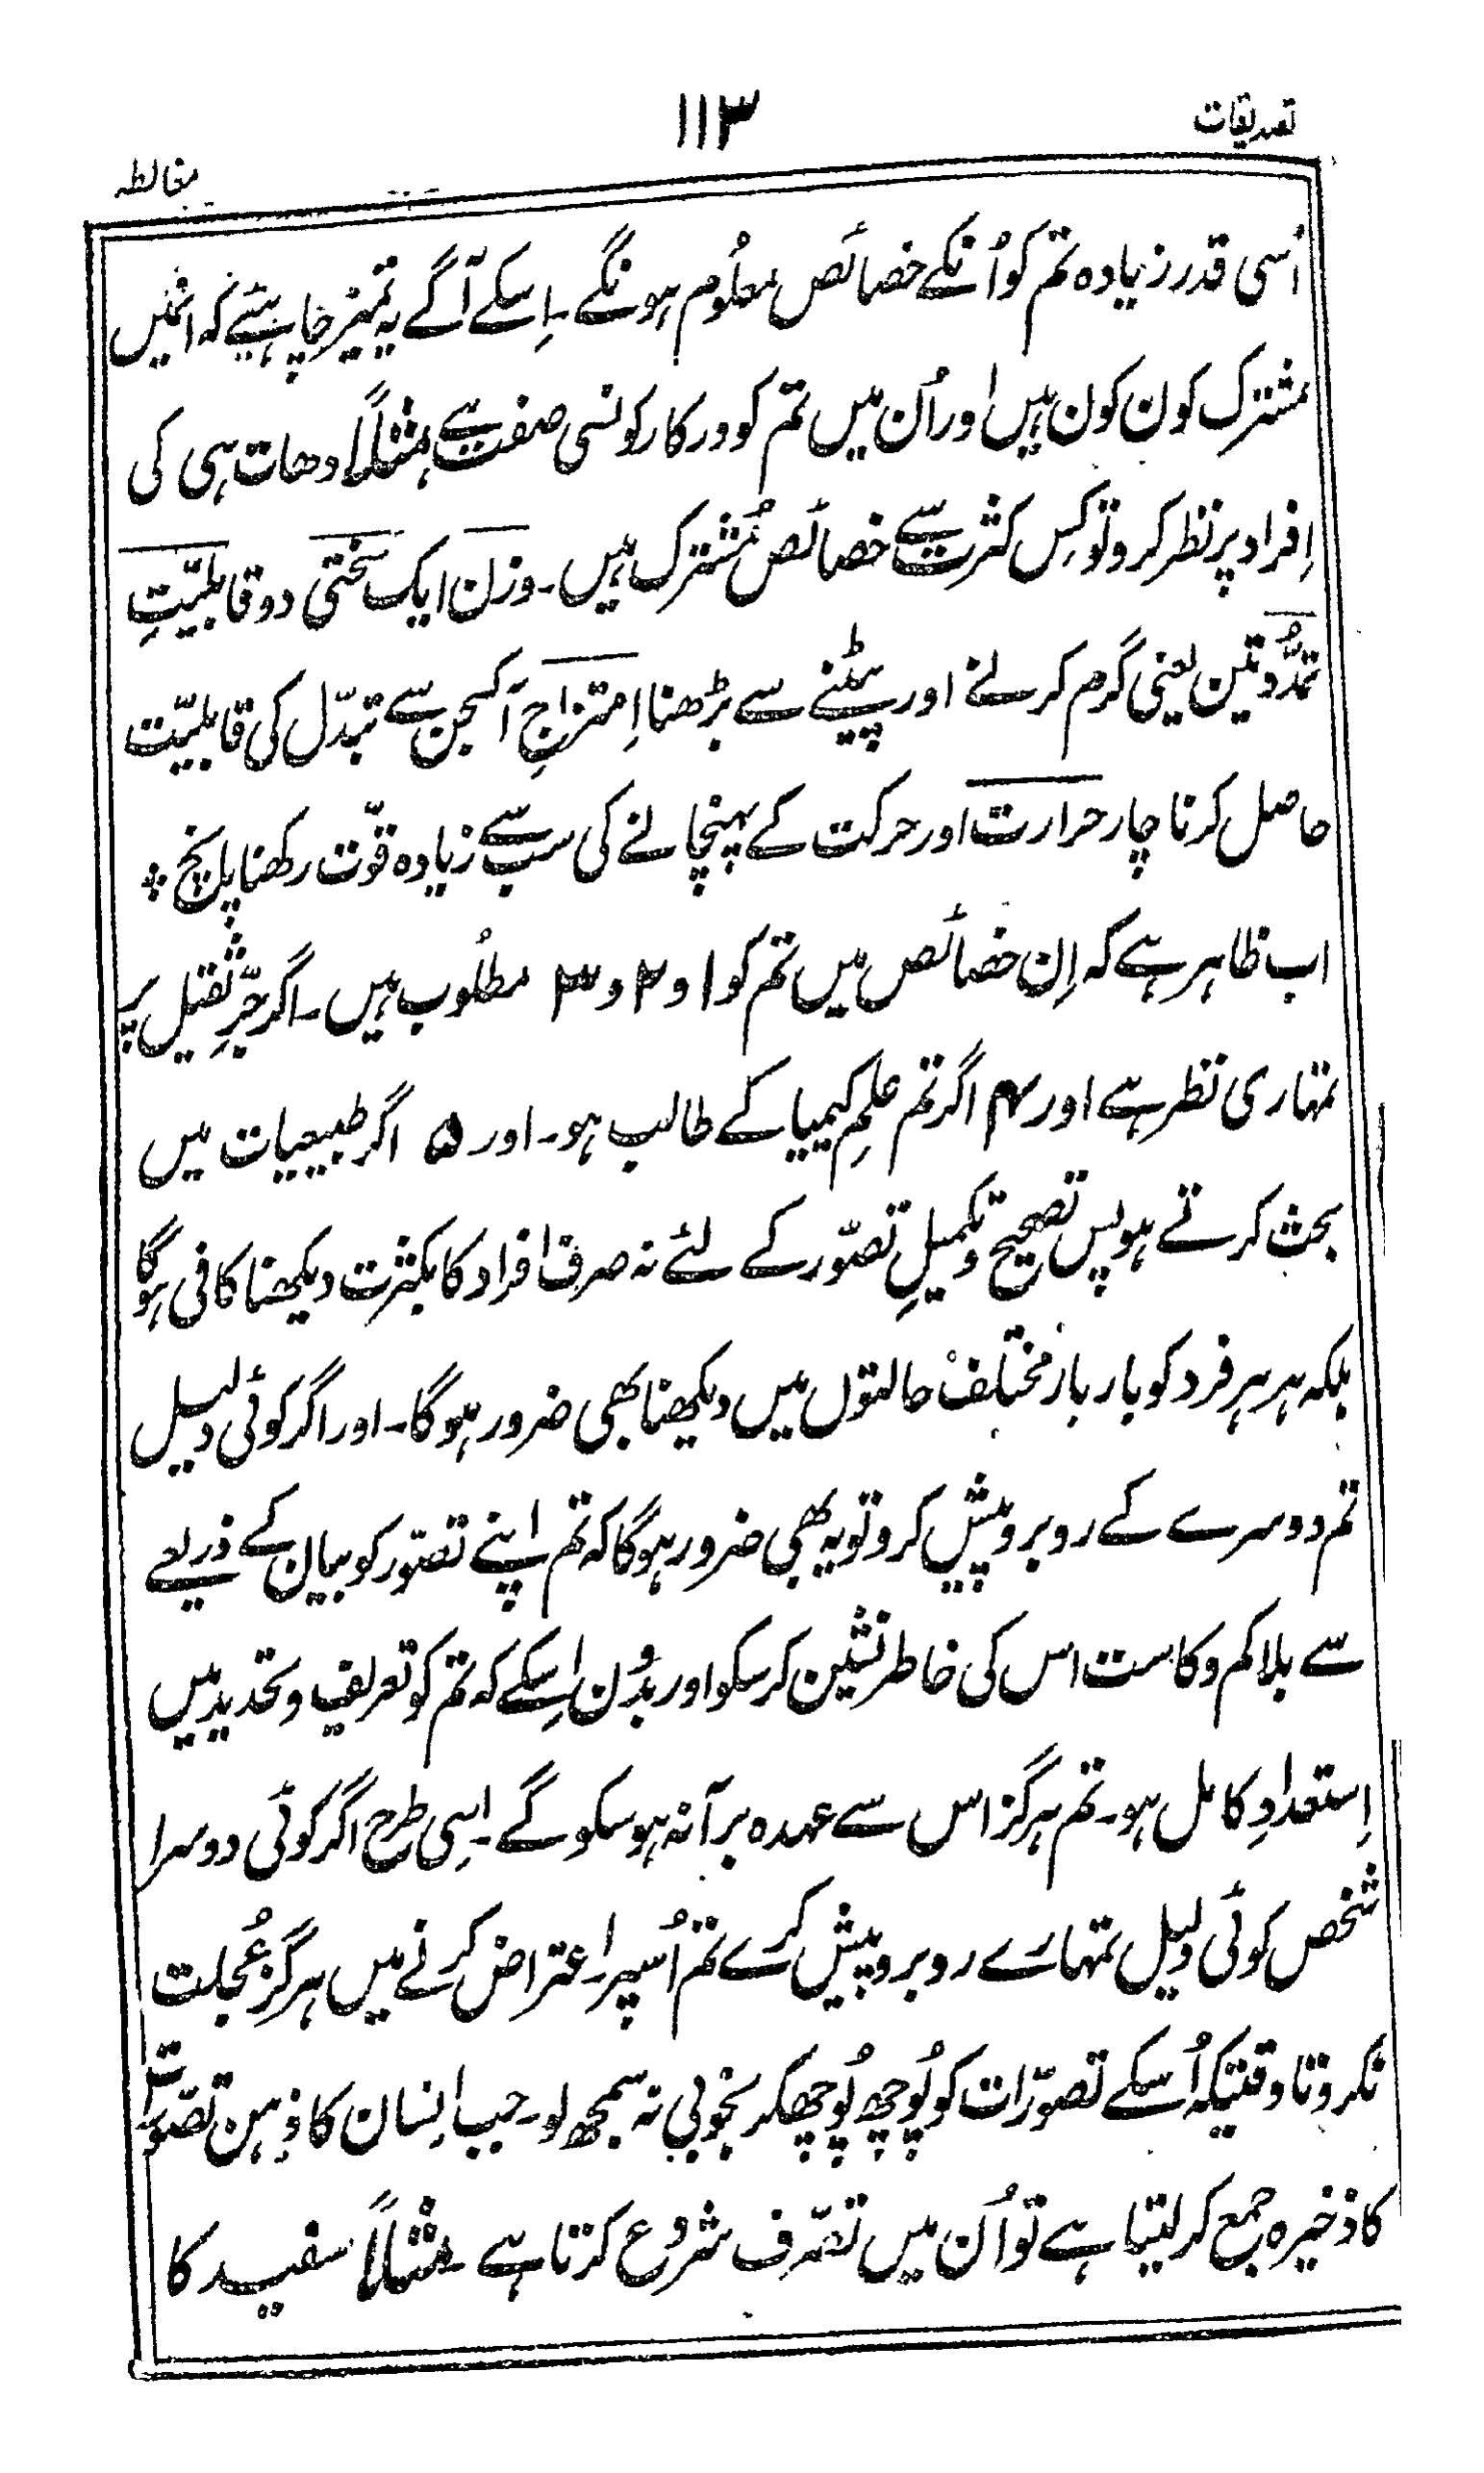 تصدیقات
۱۱۳
مغالطہ
اُسی قدر زیادہ تم کو اُنکے خصائص معلُوم ہونگے ۔ اِسکے آگے یہ تمیز چاہئیے کہ انمیں
مشترک کون کون ہیں اور اُن میں تم کو درکار کونسی صفت ہے مثلاً دھات ہی کی
اِفراد پر نظر کرو تو کِس کثرت سے خصائص مُشترک ہیں ۔ وزن ایک سختی دو قابلیّتِ
تمدُّدتین یعنی گرم کرنے اور پیٹنے سے بڑھنا اِمتزاجِ آکسجن سے تبدّل کی قابلیّت
حاصل کرنا چار حرارت اور حرکت کے پہنچانے کی سب سے زیادہ قوّت رکھنا پانچ ؞
اب ظاہر ہے کہ اِن خصائص میں تم کو ۱ و ۲ و ۳ مطلُوب ہیں ۔ اگر جرِّ ثقیل پر
تمہاری نظر ہے اور ۴ اگر تم علمِ کیمیا کے طالب ہو ۔ اور ۵ اگر طبیعیات میں
بحث کرتے ہو پس تصحیح و تکمیلِ تصّور کے لئے نہ صرف افراد کا بکثرت دیکھنا کافی ہوگا
بلکہ ہر ہر فرد کو بار بار مختلف حالتوں میں دیکھنا بھی ضرور ہوگا ۔ اور اگر کوئی دلیل
تم دوسرے کے روبرو پیش کرو تو یہ بھی ضرور ہوگا کہ تم اپنے تصوّر کو بیان کے ذریعے
سے بلا کم و کاست اس کی خاطر نشین کر سکو اور بدُون اِسکے کہ تم کو تعریف و تحدید میں
اِستعدادِ کامل ہو ۔ تم ہرگز اس سے عہدہ برآ نہ ہو سکو گے ۔ اِسی طرح اگر کوئی دوسرا
شخص کوئی دلیل تمہارے روبرو پیش کرے تم اُسپر اعتراض کرنے میں ہرگز عُجلت
نکرو تا وقتیکہ اُسکے تصوّرات کو پُوچھ پُوچھکر بخوبی نہ سمجھ لو ۔ جب اِنسان کا ذہن تصّورات
کا ذخیرہ جمع کر لیتا ہے تو اُن میں تصّرف شروع کرتا ہے ۔ مثلاً سفید کا